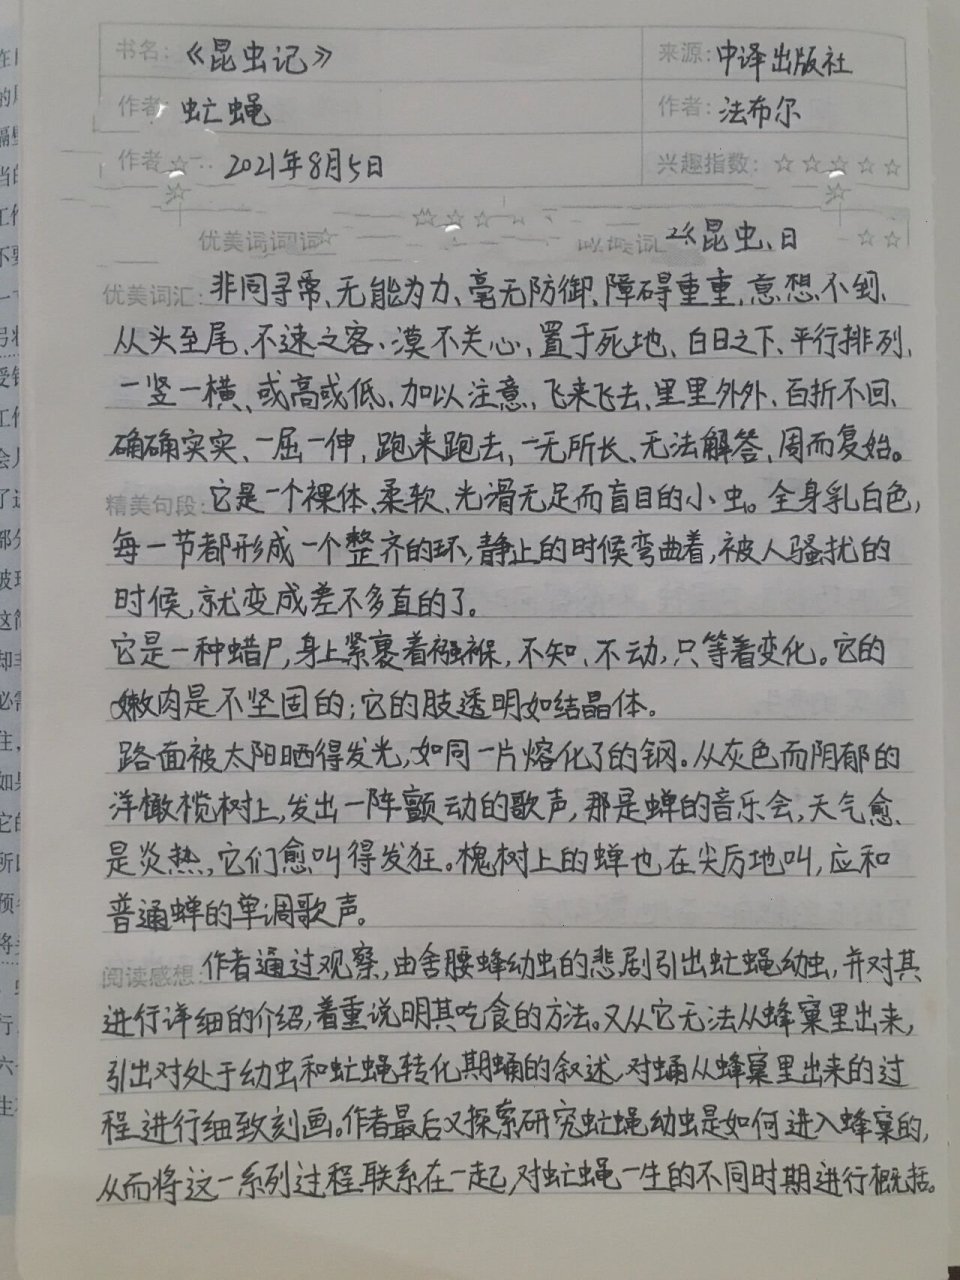 书名：《昆虫记》 来源：中译出版社
作者 虻蝇 作者：法布尔
作者 2021年8月5日 兴趣指数：☆☆☆☆☆
优美词 昆虫、日
优美词汇：非同寻常、无能为力、毫无防御、障碍重重、意想不到、
从头至尾、不速之客、漠不关心、置于死地、白日之下、平行排列、
一竖一横、或高或低、加以注意、飞来飞去、里里外外、百折不回、
确确实实、一屈一伸、跑来跑去、一无所长、无法解答、周而复始。
精美句段：它是一个裸体、柔软、光滑无足而盲目的小虫。全身乳白色，
每一节都形成一个整齐的环，静止的时候弯曲着，被人骚扰的
时候，就变成差不多直的了。
它是一种蜡尸，身上紧裹着襁褓，不知、不动，只等着变化。它的
嫩肉是不坚固的；它的肢透明如结晶体。
路面被太阳晒得发光，如同一片熔化了的钢。从灰色而阴郁的
洋橄榄树上，发出一阵颤动的歌声，那是蝉的音乐会，天气愈
是炎热，它们愈叫得发狂。槐树上的蝉也在尖厉地叫，应和
普通蝉的单调歌声。
阅读感想：作者通过观察，由舍腰蜂幼虫的悲剧引出虻蝇幼虫，并对其
进行详细的介绍，着重说明其吃食的方法。又从它无法从蜂窠里出来，
引出对处于幼虫和虻蝇转化期蛹的叙述，对蛹从蜂窠里出来的过
程进行细致刻画。作者最后又探索研究虻蝇幼虫是如何进入蜂窠的，
从而将这一系列过程联系在一起，对虻蝇一生的不同时期进行概括。